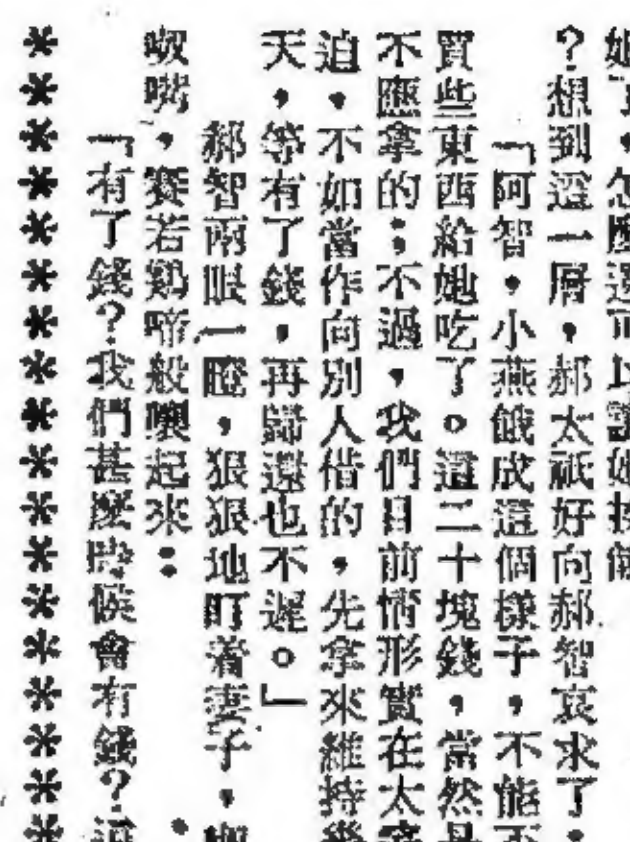 ？想到這一層，郝太祇好向郝智哀求了：
「阿智，小燕餓成這個樣子，不能不
買些東西給她吃了。這二十塊錢，當然是
不應拿的；不過，我們目前情形實在太窘
迫，不如當作向別人借的，先拿來維持幾
天，等有了錢，再歸還也不遲。」
郝智兩眼一瞪，狠狠地盯着妻子，
嘴，賽若鷄啼般嚷起來：
「有了錢？我們甚麼時候會有錢？這
******************